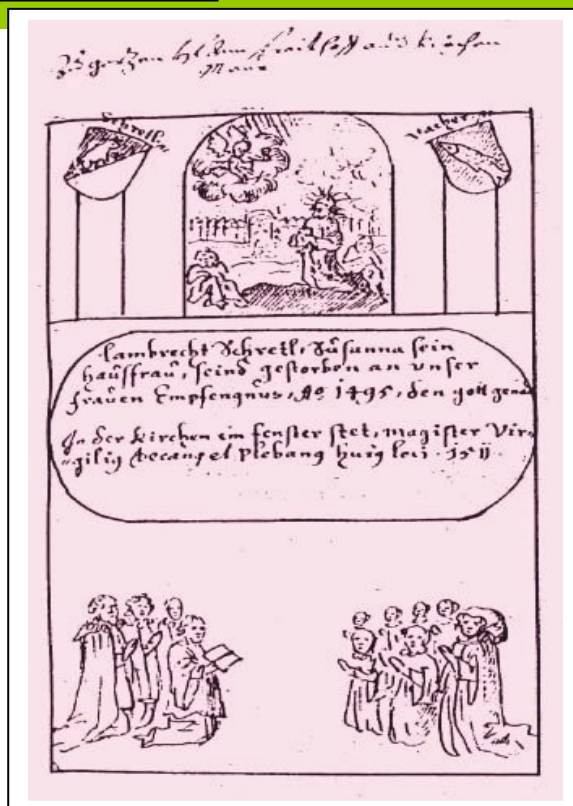 Zu gerzen
Maur
Schretl
Vacher
Lambrecht Schretl, Susanna sein
hausfrau, seind gestorben an unser
frauen Empfengnus, Ao 1495, den gott genad
In der Kirchen im fenster stet, magister Vir¬
gilig Decan et plebang huig loci. 1511